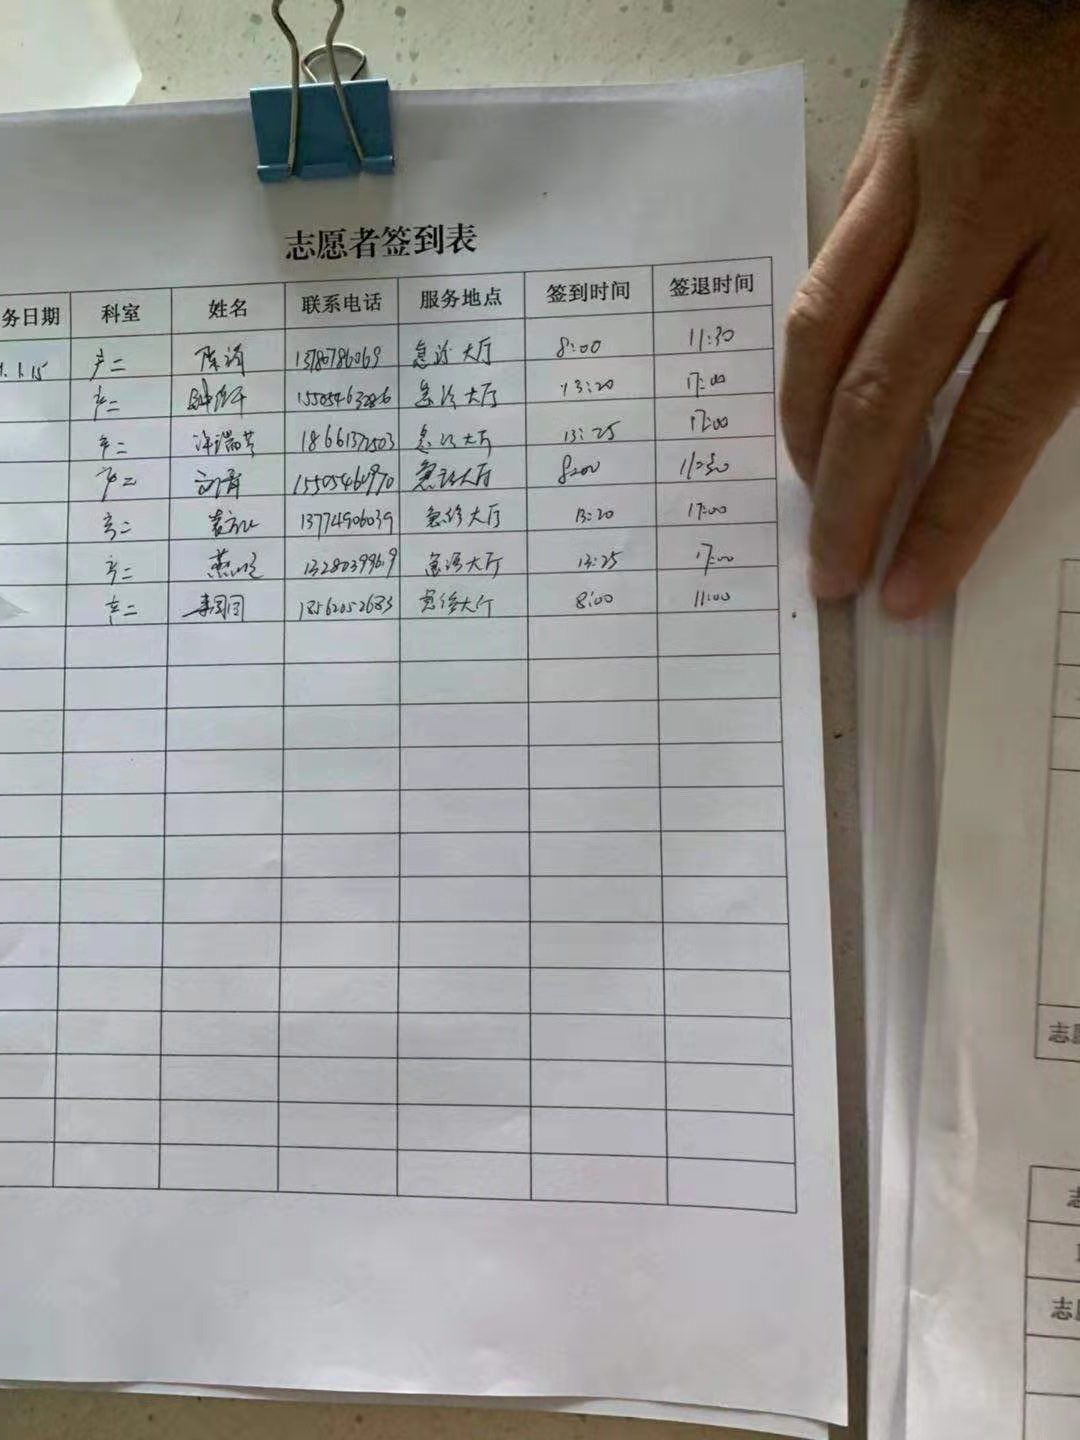 志愿者签到表
务日期 科室 姓名 联系电话 服务地点 签到时间 签退时间
1.15 产二 陈涛 急诊大厅 8:00 11:30
产二 急诊大厅 13:20 17:00
产二 许瑞芳 18661372503 急诊大厅 13:25 17:00
产二 刘霄 15505460970 急诊大厅 8:00 11:30
产二 13774906039 急诊大厅 13:20 17:00
产二 13280399619 急诊大厅 13:25 17:00
产二 18562052683 急诊大厅 8:00 11:00
志愿
志
志愿